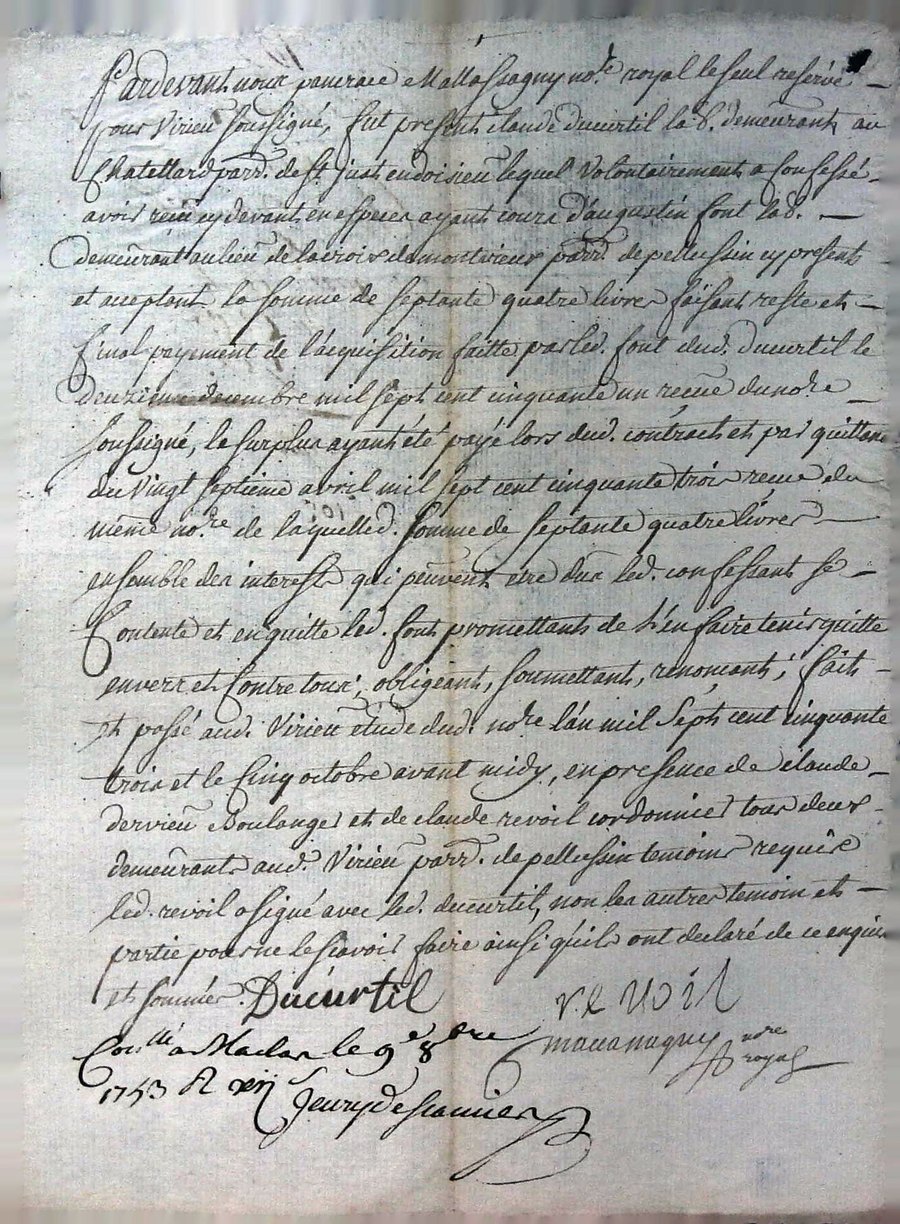 Pardevant nous pancrace Mattassagny no.re royal le seul reservé
pour Virieu soussigné, fut present claude ducurtil lab.r demeurant au
Chatellard parr.e de st just en doisieu lequel volontairement a confessé
avoir reçu cy devant en especes ayant cours d'augustin font lab.r
demeurant au lieu de la croix de montvieux parr.e de pellussin cy present
et acceptant la somme de septante quatre livres faisant reste et
final payement de l'acquisition faitte par led. font dud. ducurtil le
deuzieme decembre mil sept cent cinquante un reçue du no.re
soussigné, le surplus ayant été payé lors dud. contract et par quittance
du vingt septieme avril mil sept cent cinquante trois reçue du
même no.re de laquelle d. somme de septante quatre livres
ensemble des interests qui peuvent etre dus led. confessant se
Contente et en quitte led. font promettants de l'en faire tenir quitte
envers et Contre tous, obligeant, soumettant, renonçant, fait
et passé aud. Virieu étude dud. no.re l'an mil sept cent cinquante
trois et le Cinq octobre avant midy, en presence de claude
dervieu Boulanger et de claude revoil cordonnier tous deux
demeurants aud. Virieu parr.e de pellussin temoins requis
led. revoil a signé avec led. ducurtil, non les autres temoin et
partie pour ne le scavoir faire ainsi qu'ils ont declaré de ce enquis
et sommés. Ducurtil
revoil
no.re royal
Con.llé a Maclas le 9e 8bre
1753